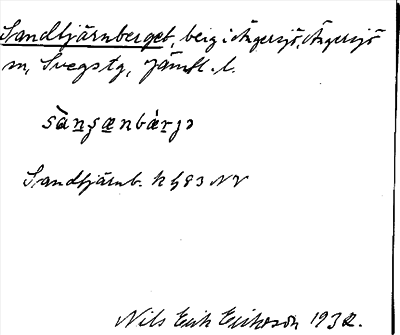 Sandtjärnberget, berg i Ängersjö, Ängersjö
sn, Svegs tg, Jämtl. l.
Sandtjärnb. k h 83 NV
Nils Erik Eriksson 1932.